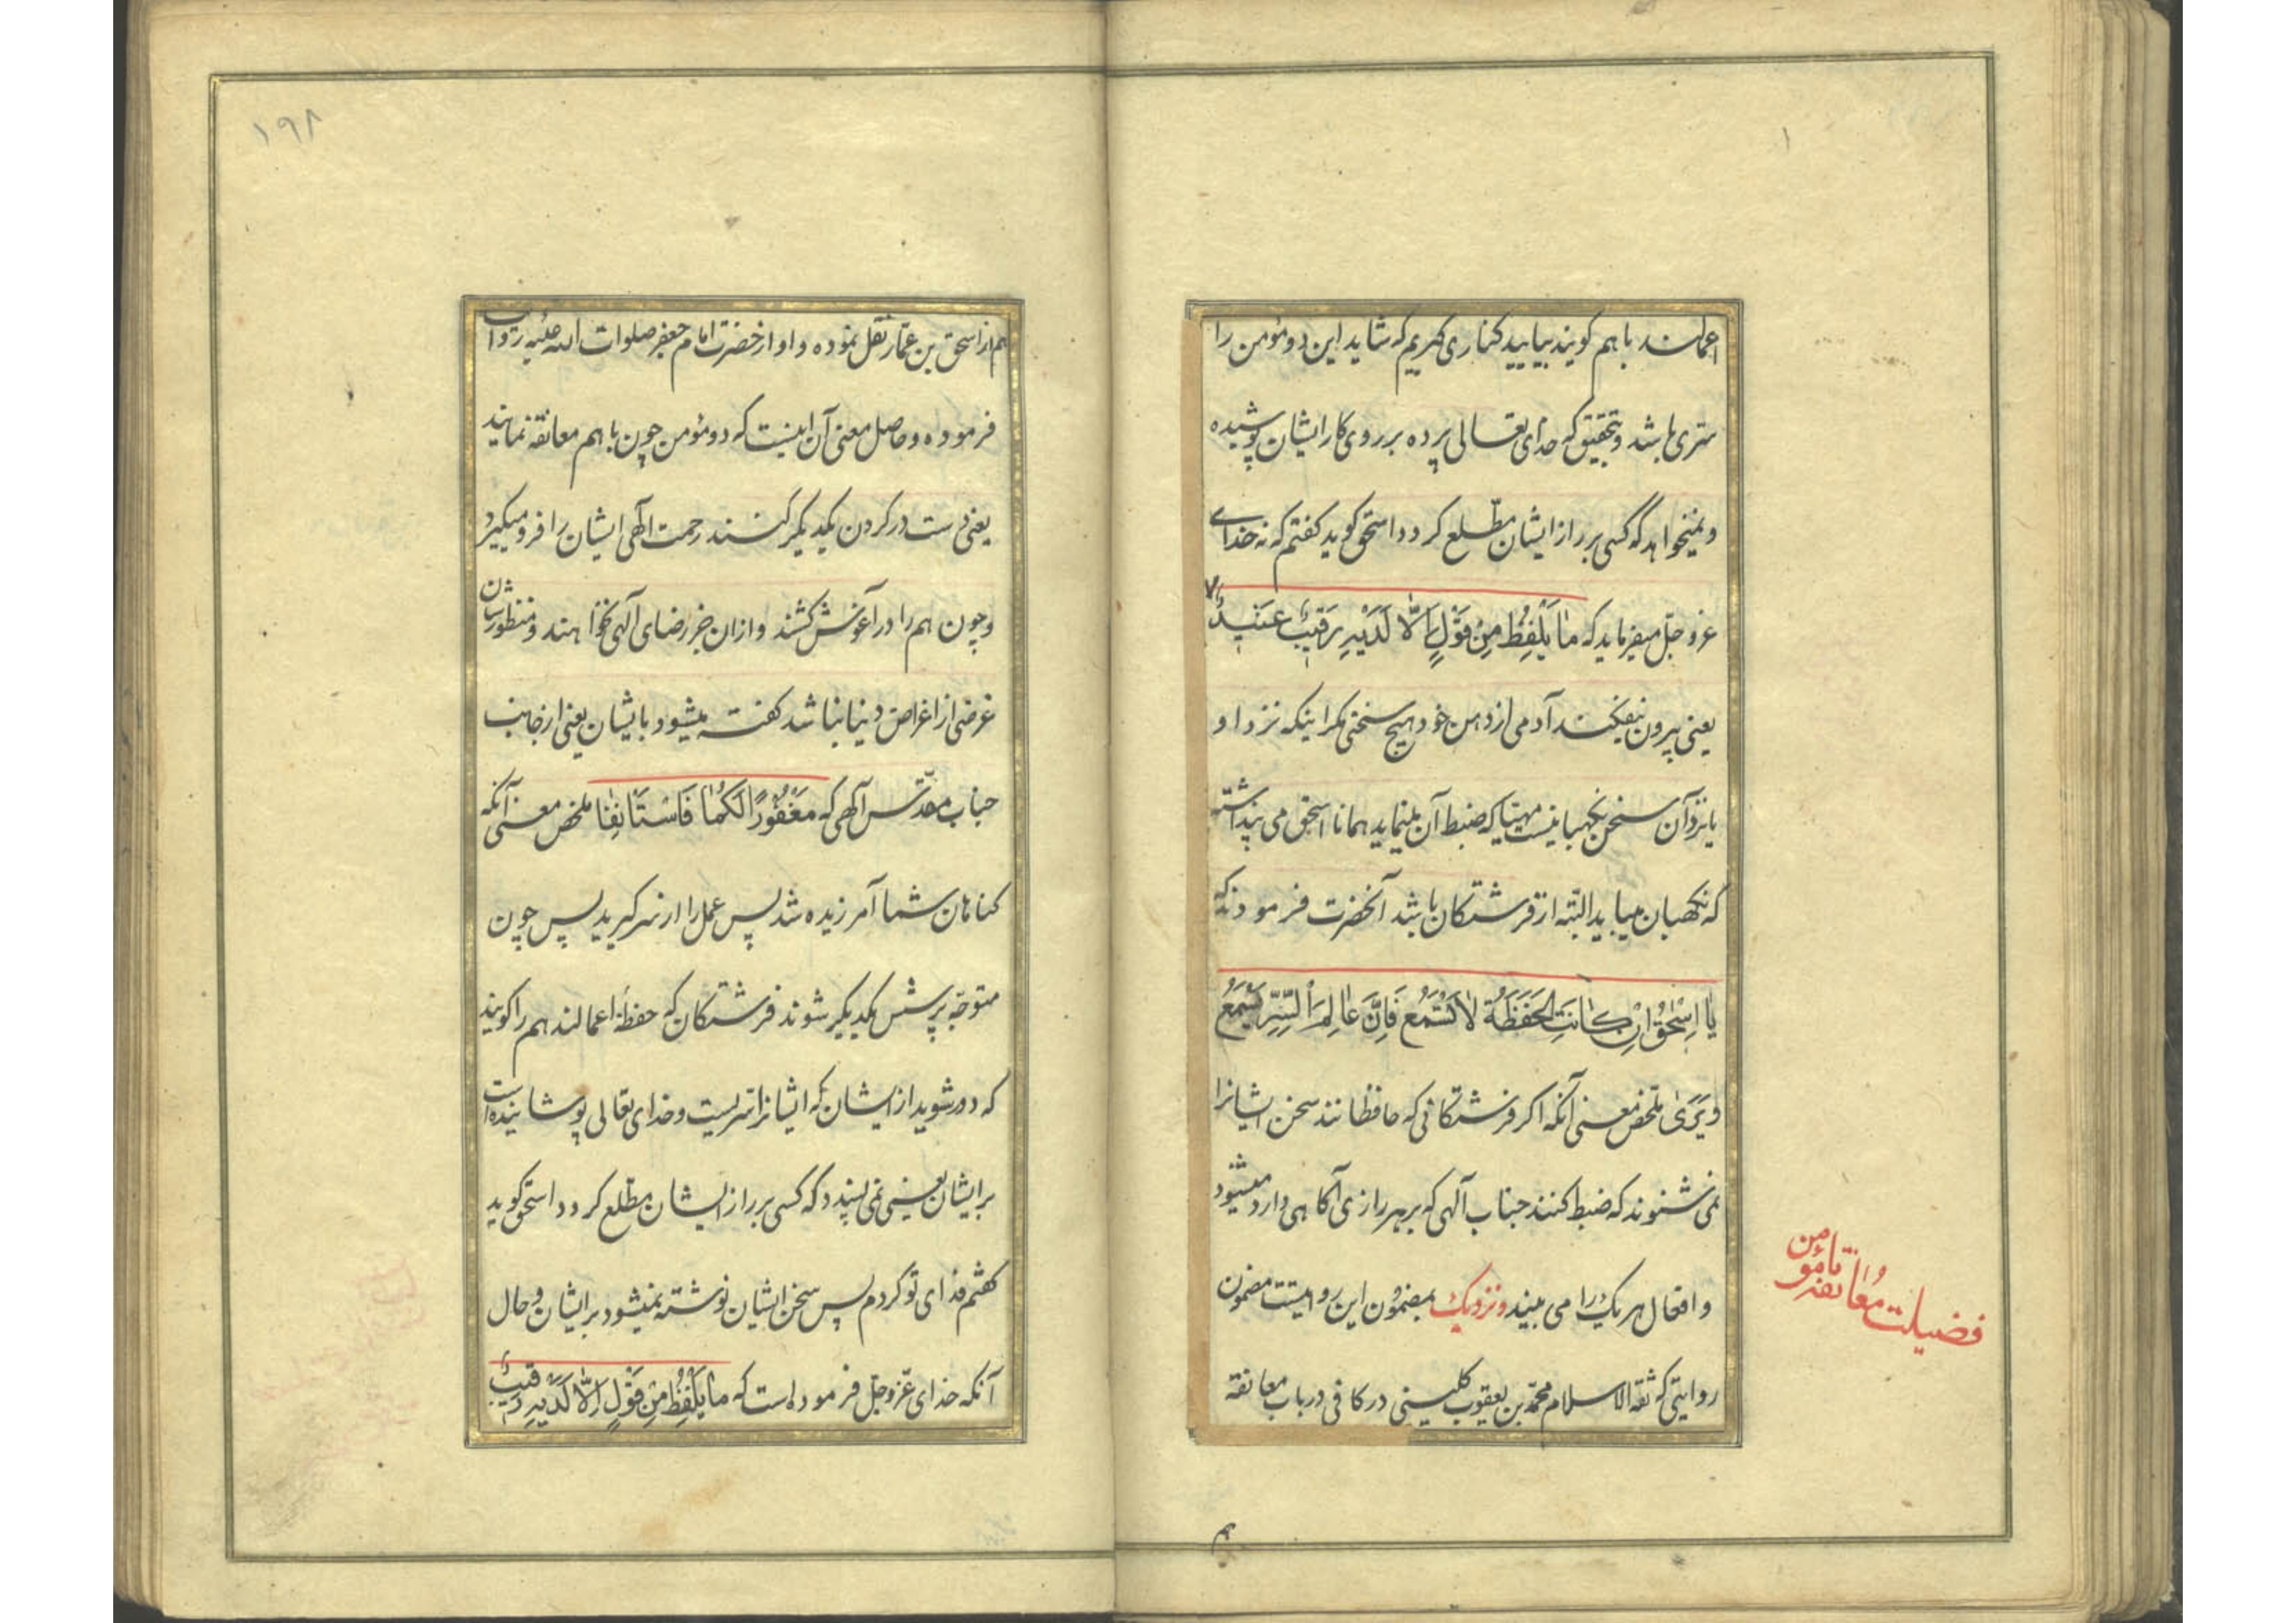 اعمالند باهم کویند بیایید کناری کیریم که شاید این دو مؤمن را
ستری باشد و بتحقیق که خدای تعالی پرده بر روی کار ایشان پوشیده
و نمیخواهد که کسی بر راز ایشان مطّلع کردد اسحق کوید کفتم که نه خدای
عزوجلّ میفرماید که مٰا یَلْفِظُ مِنْ قَوْلٍ اِلّٰا لَدَیْهِ رَقیٖبٌ عَتیٖدٌ
یعنی بیرون نیفکند آدمی از دهن خود هیچ سخنی مکر اینکه نزد او
یا نزد آن سخن نکهبانیست مهیّا که ضبط آن مینماید همانا اسحق می پنداشته
که نکهبان میباید البته از فرشتکان باشد آنحضرت فرمودند که
یٰا اِسْحٰقُ اِنْ کٰانَتِ الْحَفَظَةُ لٰا تَسْمَعُ فَاِنَّ عٰالِمَ السِّرِّ یَسْمَعُ
وَ یَرٰی ملخّص معنی آنکه اکر فرشتکانی که حافظانند سخن ایشانرا
نمی شنوند که ضبط کنند جناب آلهی که بر هر رازی آکاهی دارد میشنود
و افعال هر یک را می بیند و نزدیک بمضمون این روایتست مضمون
روایتی که ثقة الاسلام محمّد بن یعقوب کلینی در کافی در باب معانقه
فضیلت معانقه با مؤمن
هم
۱۹۸
هم از اسحق بن عمّار نقل نموده و او از حضرت امام جعفر صلوات الله علیه روایت
فرموده و حاصل معنی آن اینست که دو مؤمن چون با هم معانقه نمایند
یعنی دست در کردن یکدیکر کنند رحمت الهی ایشان را فرو میکیرد
و چون هم را در آغوش کشند و از ان جز رضای آلهی نخواهند و منظورشان
غرضی از اغراض دنیا نباشد کفته میشود بایشان یعنی از جانب
جناب مقدّس آلهی که مَغْفُورًا لَکُمٰا فَاسْتَأْنِفٰا ملخص معنی آنکه
کناهان شما آمرزیده شد پس عمل را از سر کیرید پس چون
متوجّه پرسش یکدیکر شوند فرشتکان که حفظهٔ اعمالند هم را کویند
که دور شوید از ایشان که ایشانرا سرّیست و خدای تعالی پوشانیده است
بر ایشان یعنی نمی پسندد که کسی بر راز ایشان مطّلع کردد اسحق کوید
کفتم فدای تو کردم پس سخن ایشان نوشته نمیشود بر ایشان و حال
آنکه خدای عزّوجلّ فرموده است که مٰا یَلْفِظُ مِنْ قَوْلٍ اِلّٰا لَدَیْهِ رَقیبٌ